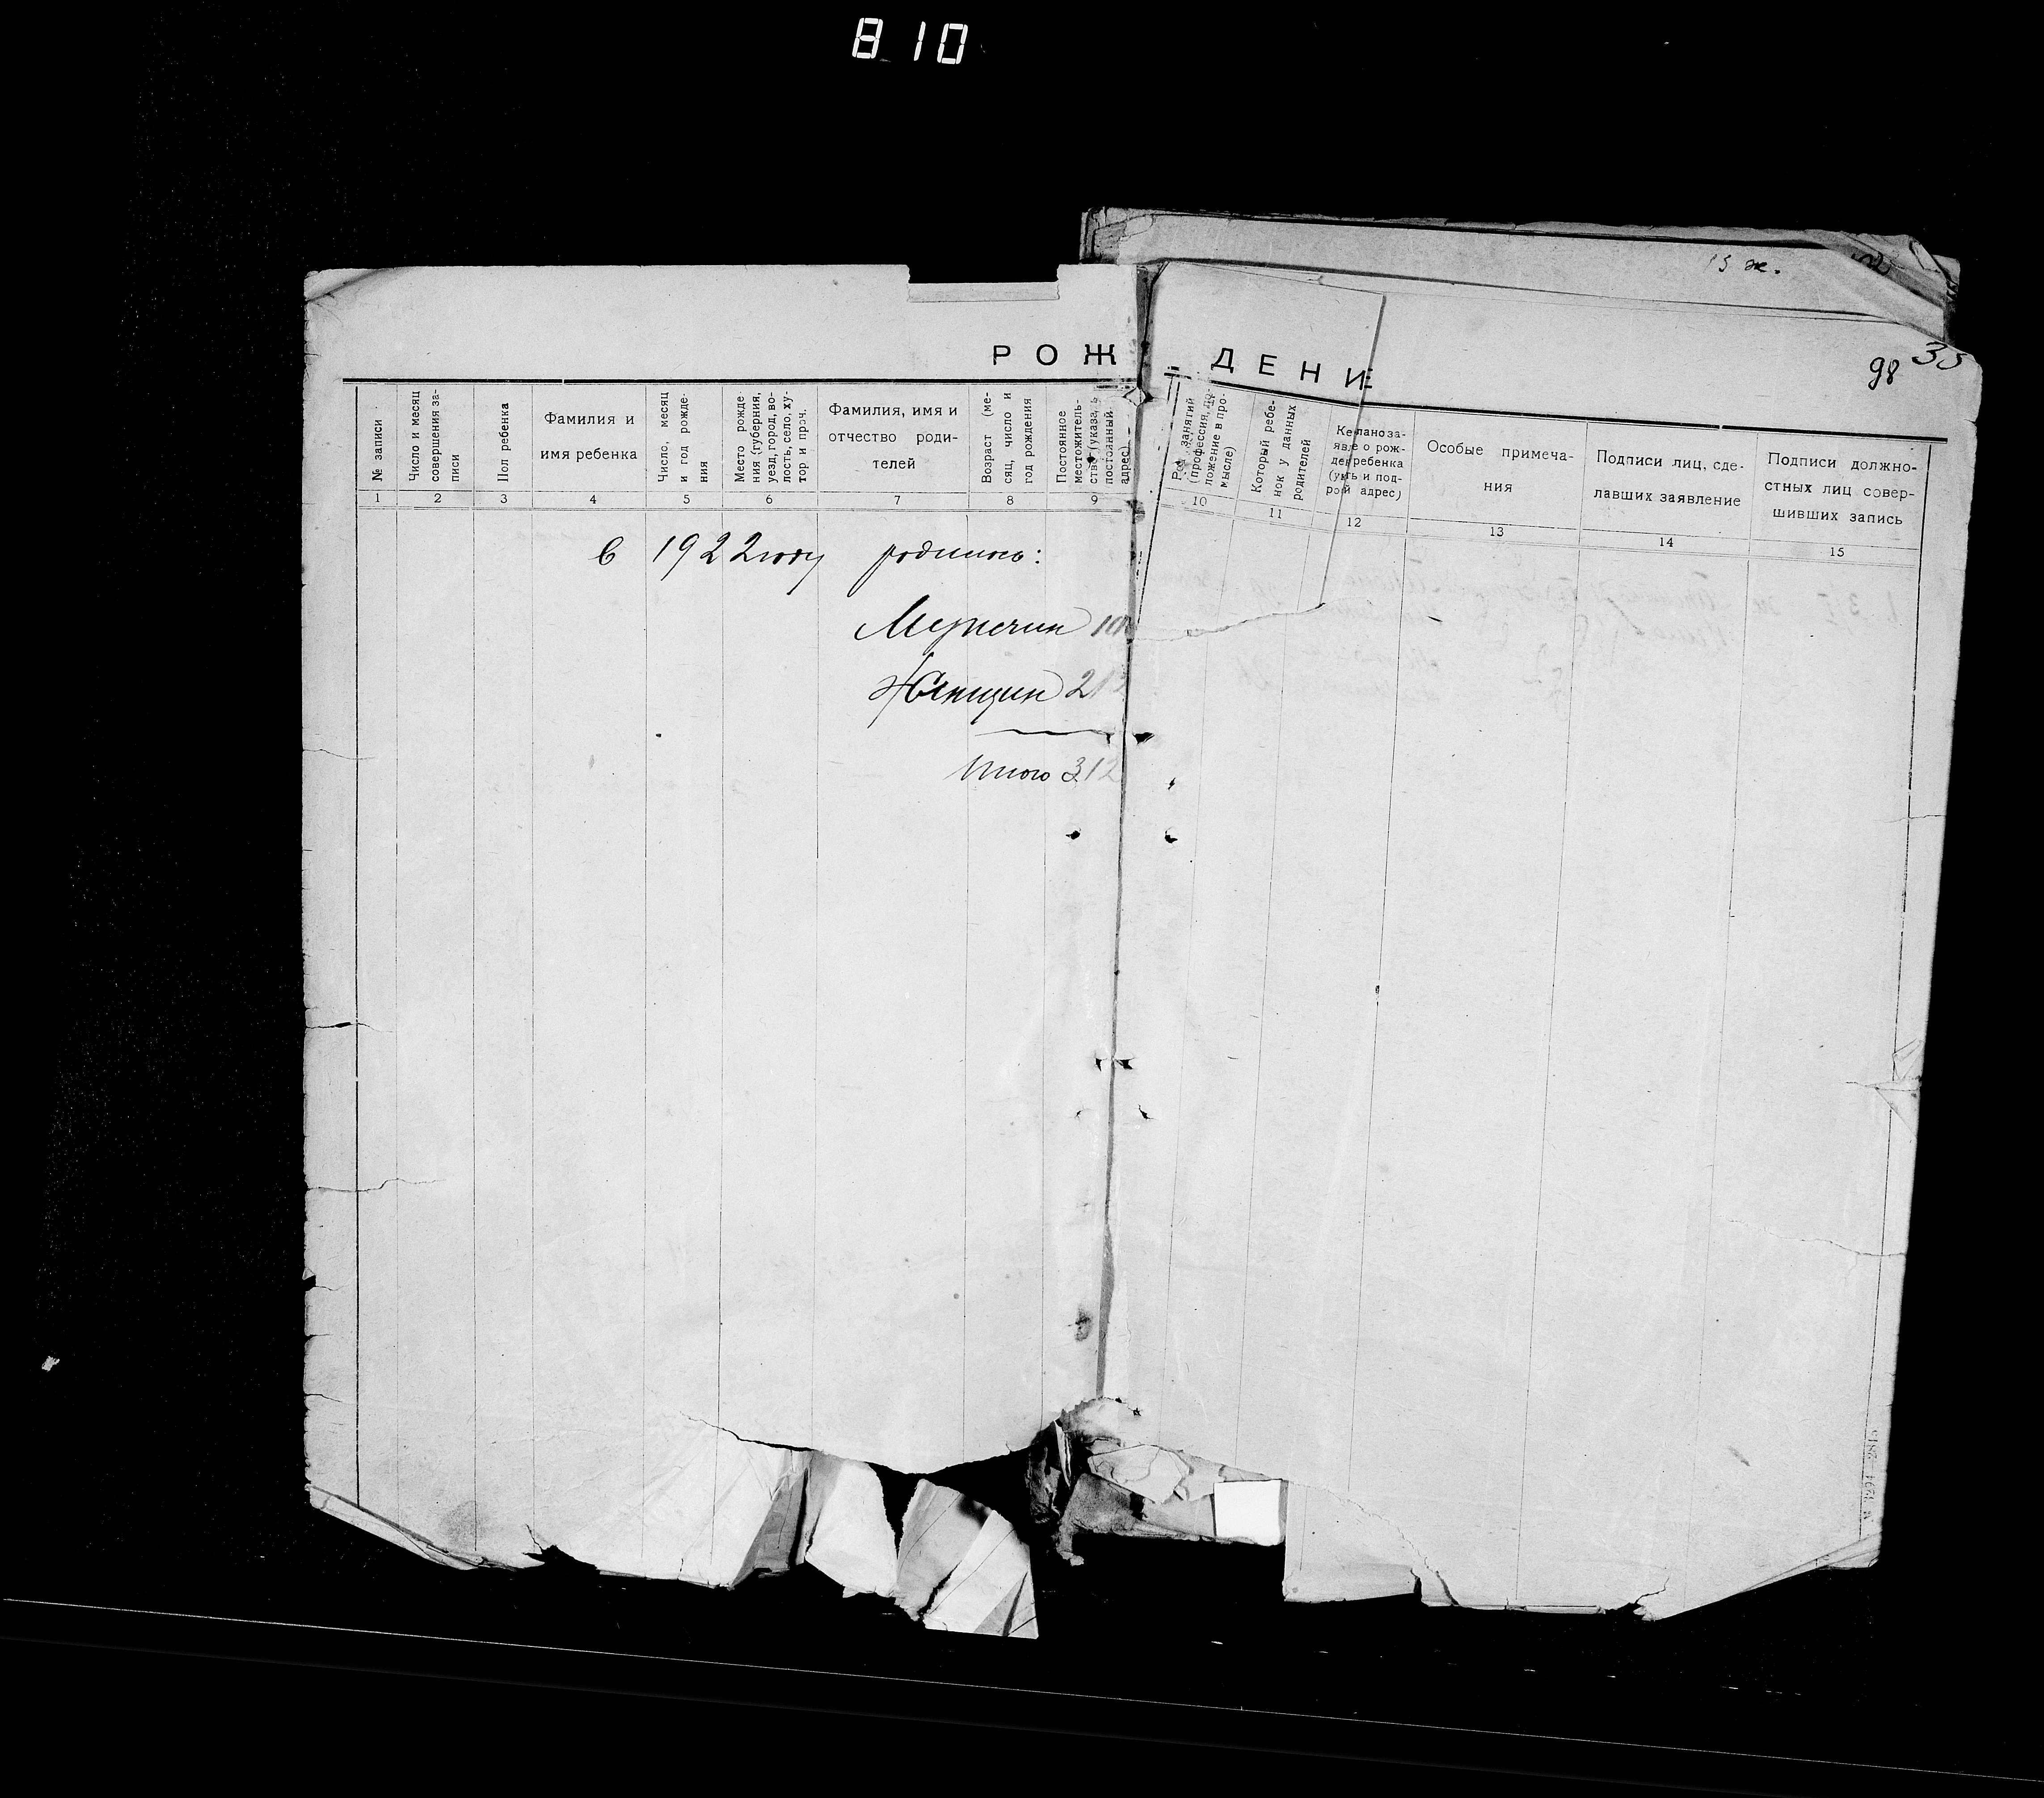 810
13 ж.
РОЖДЕНИ
98 35
№ записи
Число и месяц совершения за-
писи
Пол ребенка
Фамилия и
имя ребенка
Число, месяц
и год рожде-
ния
Место рожде
ния (губерния,
уезд, город, во-
лость, село, ху-
тор и проч.
Фамилия, имя и
отчество роди-
телей
Возраст (ме-
сяц, число и
год рождения
Постоянное
местожитель-
ство (указать
постоянный
адрес)
занятий
(профессия,
ложение в про-
мысле)
Который ребе-
нок у данных
родителей
рож-
ребенка
и под-
адрес)
Особые примеча-
ния
Подписи лиц, сде-
лавших заявление
Подписи должно-
стных лиц совер-
шивших запись
1 2 3 4 5 6 7 8 9 10 11 12 13 14 15
в 1922 году родилось:
Мужчин
Женщин 212
Итого 312